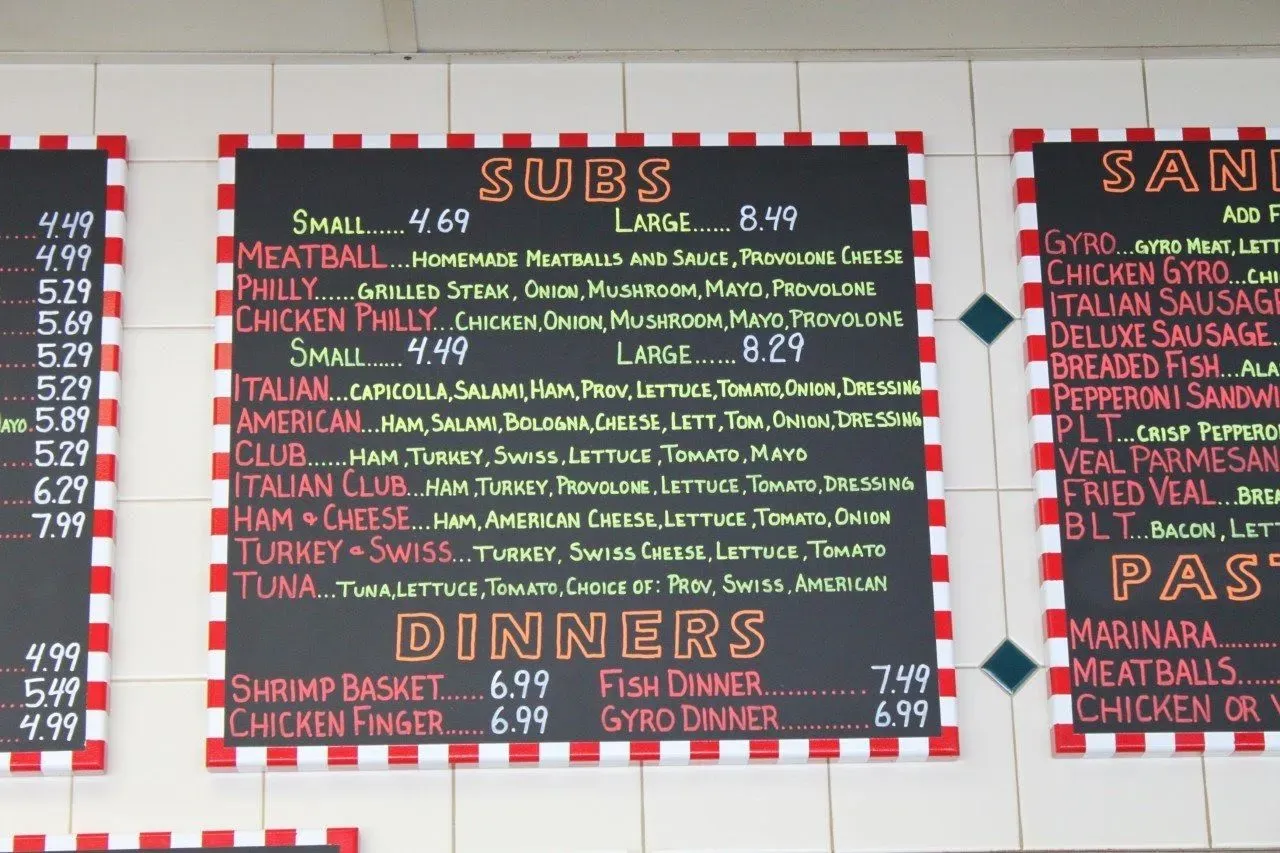 4.49
4.99
5.29
5.69
5.29
5.29
AYO. 5.89
5.29
6.29
7.99
4.99
5.49
4.99
SUBS
SMALL...... 4.69 LARGE...... 8.49
MEATBALL...HOMEMADE MEATBALLS AND SAUCE, PROVOLONE CHEESE
PHILLY......GRILLED STEAK, ONION, MUSHROOM, MAYO, PROVOLONE
CHICKEN PHILLY...CHICKEN, ONION, MUSHROOM, MAYO, PROVOLONE
SMALL...... 4.49 LARGE...... 8.29
ITALIAN...CAPICOLLA, SALAMI, HAM, PROV, LETTUCE, TOMATO, ONION, DRESSING
AMERICAN...HAM, SALAMI, BOLOGNA, CHEESE, LETT, TOM, ONION, DRESSING
CLUB......HAM, TURKEY, SWISS, LETTUCE, TOMATO, MAYO
ITALIAN CLUB...HAM, TURKEY, PROVOLONE, LETTUCE, TOMATO, DRESSING
HAM & CHEESE...HAM, AMERICAN CHEESE, LETTUCE, TOMATO, ONION
TURKEY & SWISS...TURKEY, SWISS CHEESE, LETTUCE, TOMATO
TUNA...TUNA, LETTUCE, TOMATO, CHOICE OF: PROV, SWISS, AMERICAN
DINNERS
SHRIMP BASKET...... 6.99 FISH DINNER............ 7.49
CHICKEN FINGER..... 6.99 GYRO DINNER........... 6.99
SAN
ADD F
GYRO...GYRO MEAT, LETT
CHICKEN GYRO...CHI
ITALIAN SAUSAGE
DELUXE SAUSAGE..
BREADED FISH...ALA
PEPPERONI SANDWI
PLT...CRISP PEPPERO
VEAL PARMESAN
FRIED VEAL...BREA
BLT...BACON, LETT
PAST
MARINARA......
MEATBALLS....
CHICKEN OR V